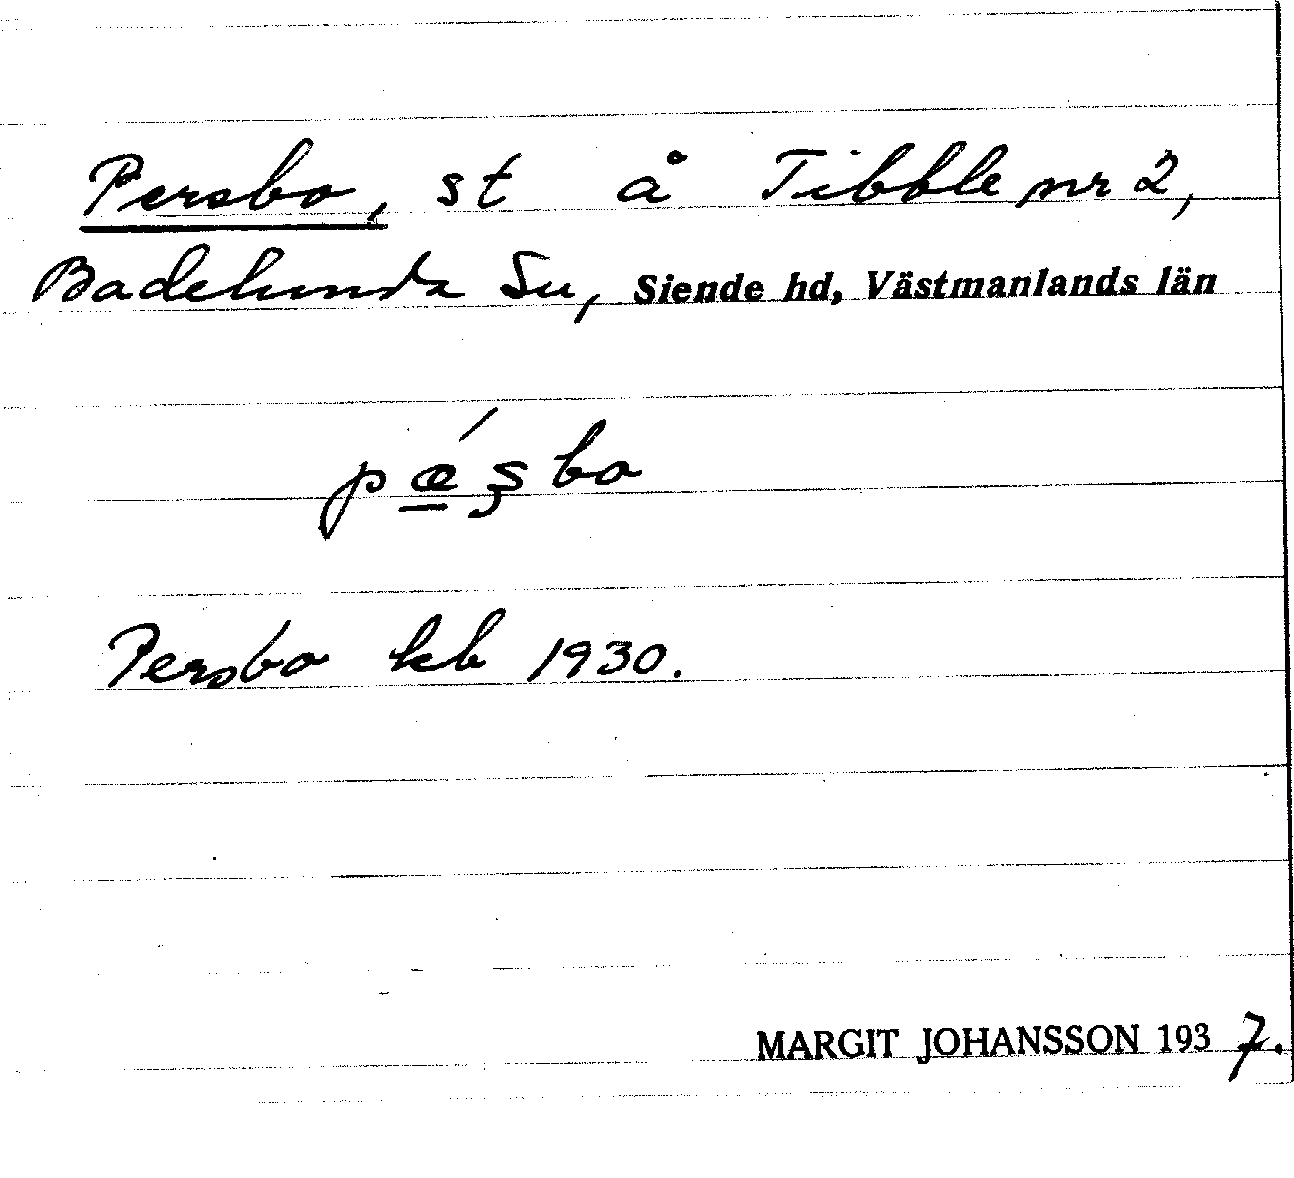 Persbo, st å Tibble nr 2,
Badelunda Sn, Siende hd, Västmanlands län
pǽ̲ʂbo
Persbo kb 1930.
MARGIT JOHANSSON 1937.